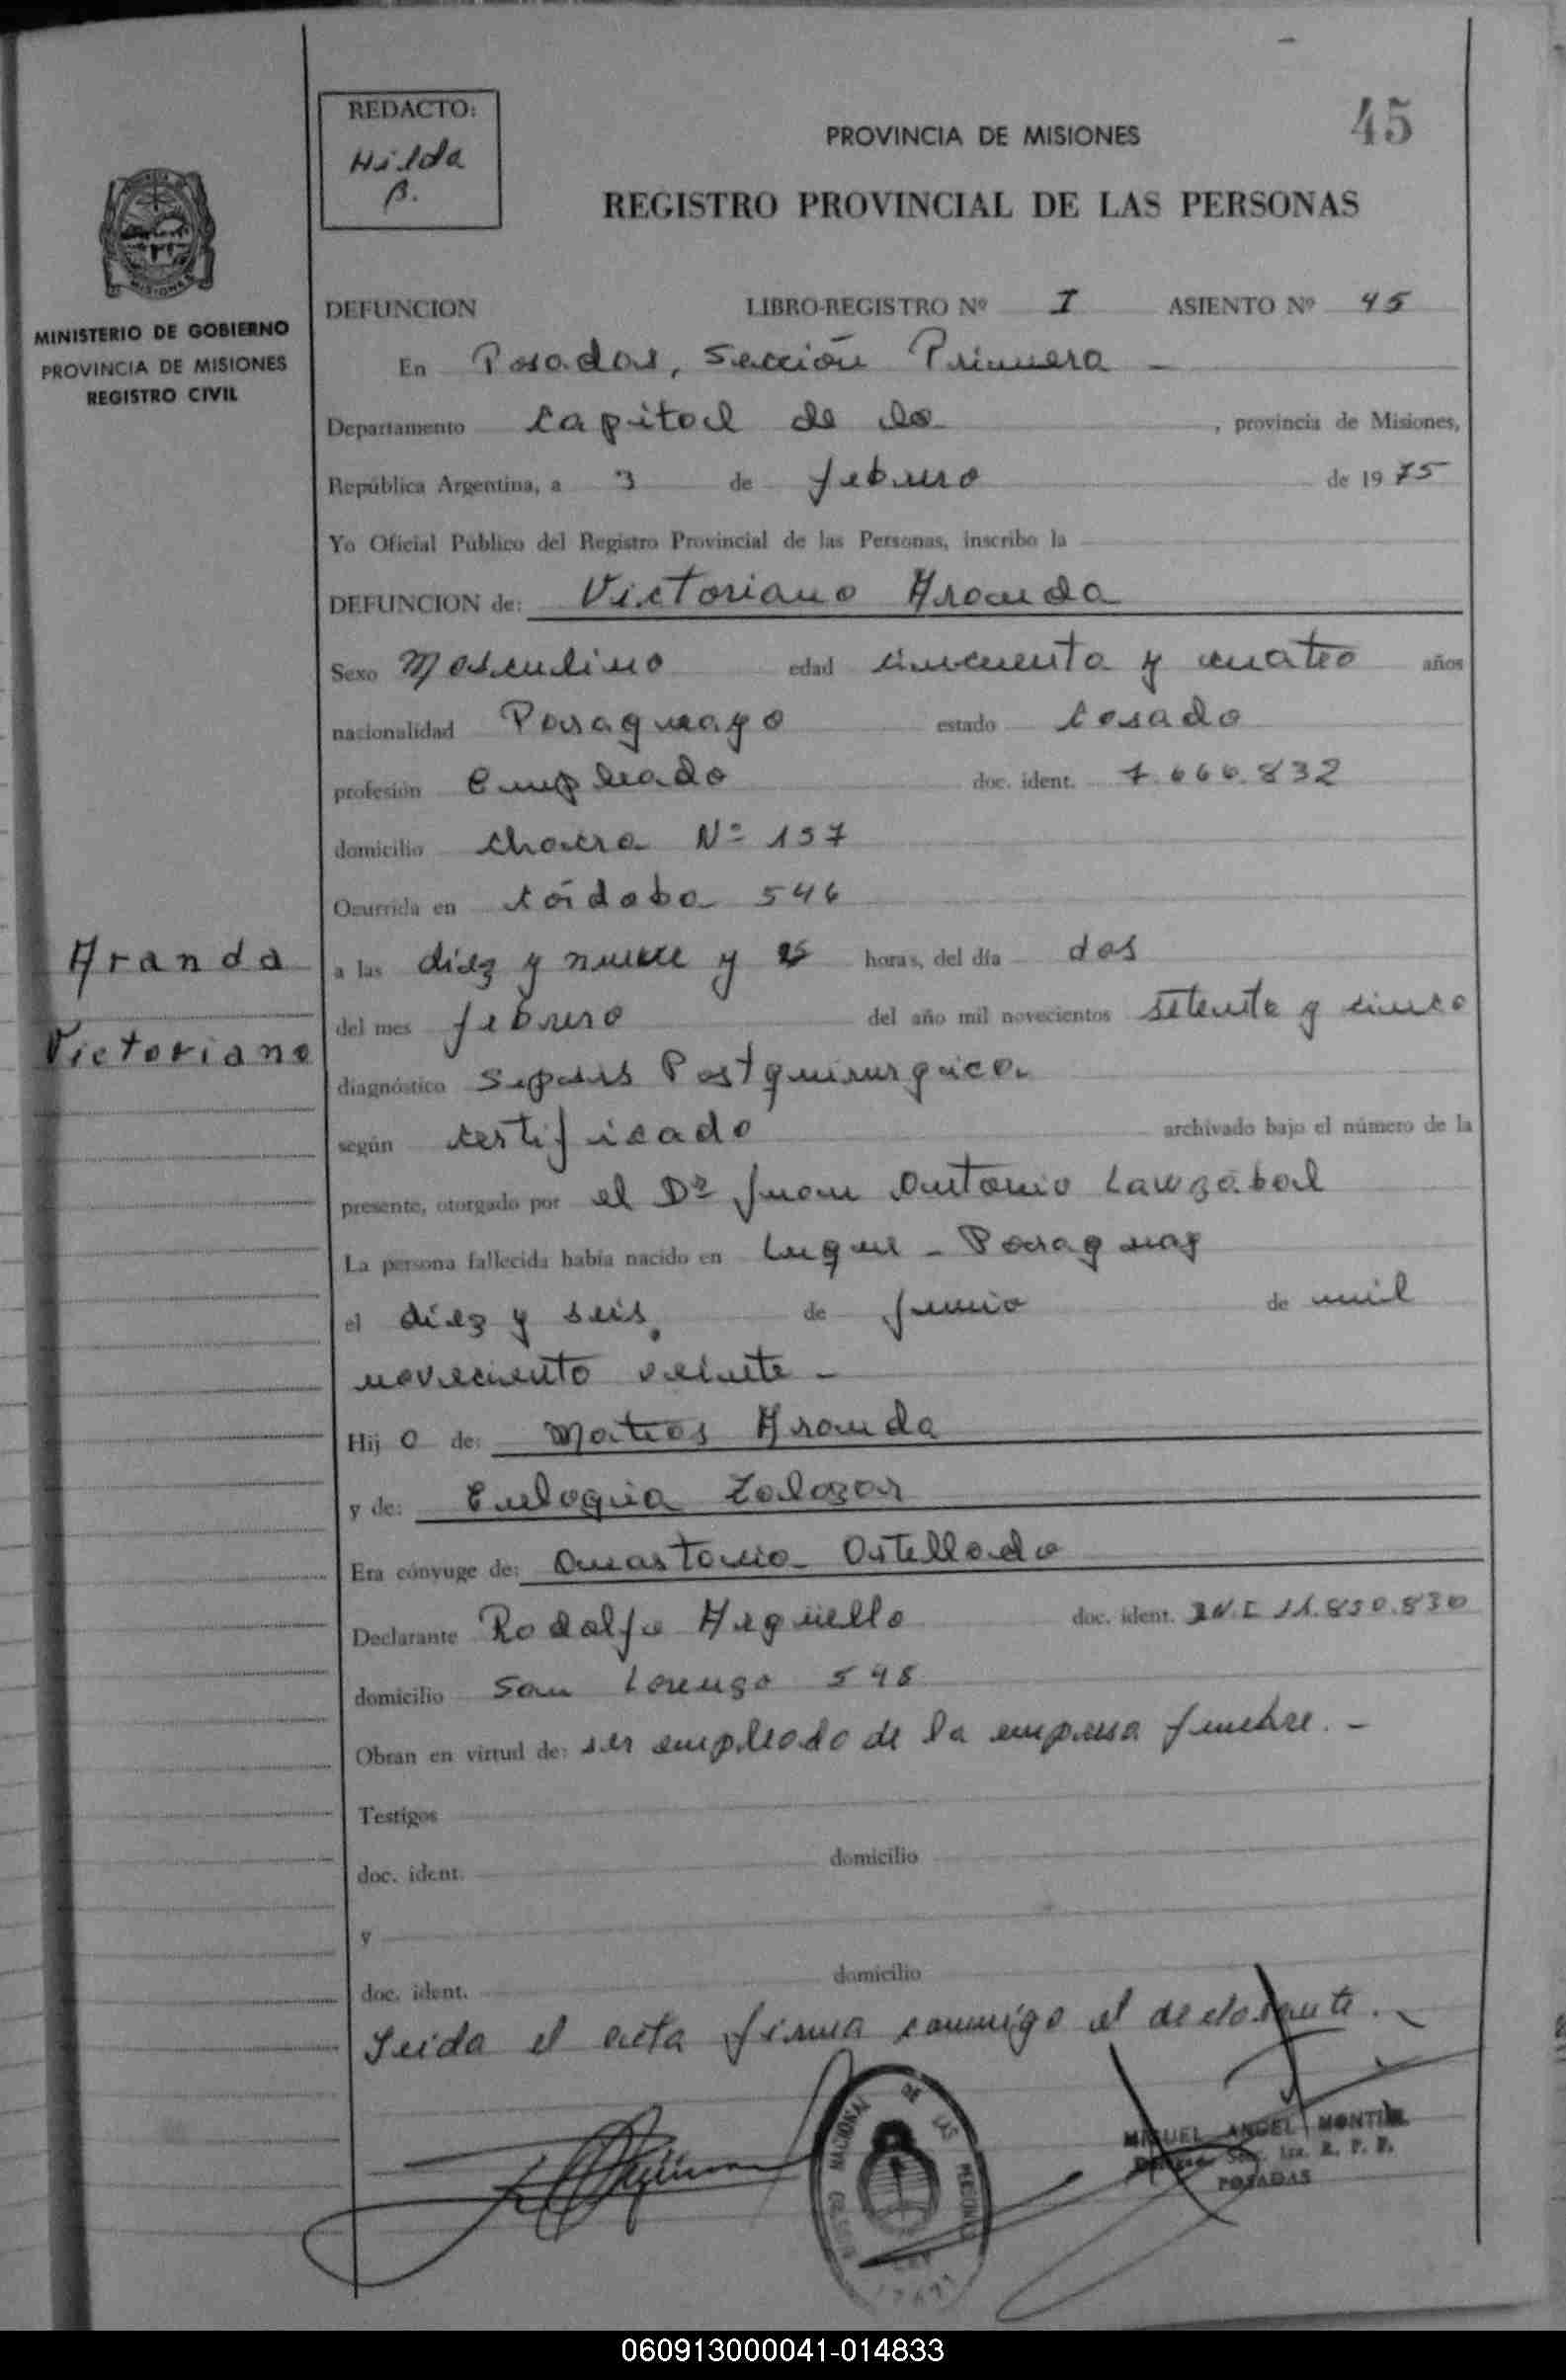 REDACTO:
Hilda
B.
45
PROVINCIA DE MISIONES
REGISTRO PROVINCIAL DE LAS PERSONAS
MISIONES
MINISTERIO DE GOBIERNO
PROVINCIA DE MISIONES
REGISTRO CIVIL
DEFUNCION LIBRO-REGISTRO Nº I ASIENTO Nº 45
En Posadas, Sección Primera -
Departamento Capital de la , provincia de Misiones,
República Argentina, a 3 de febrero de 1975
Yo Oficial Público del Registro Provincial de las Personas, inscribo la
DEFUNCION de: Victoriano Aranda
Sexo Masculino edad cincuenta y cuatro años
nacionalidad Paraguayo estado Casado
profesión Empleado doc. ident. 7.666.832
domicilio Chacra Nº 157
Ocurrida en Córdoba 546
Aranda
Victoriano
a las diez y nueve y horas, del día dos
del mes febrero del año mil novecientos setenta y cinco
diagnóstico Sepsis Postquirurgica
según certificado archivado bajo el número de la
presente, otorgado por el Dr Juan Antonio Lanzabal
La persona fallecida había nacido en Luque - Paraguay
el diez y seis de Junio de mil
noveciento veinte -
Hij o de: Matias Aranda
y de: Eulogia Zalazar
Era cónyuge de: Anastacia Ostellado
Declarante Rodolfo Argüello doc. ident. DNI 11.850.830
domicilio San Lorenzo 548
Obran en virtud de: ser empleado de la empresa fúnebre. -
Testigos
doc. ident. domicilio
y
doc. ident. domicilio
Leida el acta firma conmigo el declarante. -
NACIONAL DE LAS PERSONAS
MIGUEL ANGEL MONTIEL
Sec. 1ra. R. P. P.
POSADAS
060913000041-014833